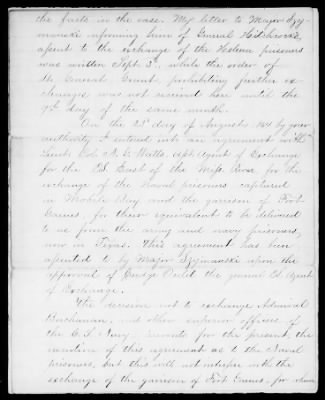 the facts in the case. My letter to Major Szy-
manski informing him of General Hitchcock's
assent to the exchange of the Helena prisoners
was written Sept. 3d while the order of
Lt. General Grant prohibiting further ex-
changes was not received here until the
9th day of the same month.
On the 25th day of August 1864 by your
authority I entered into an agreement with
Lieut. Col. N. G. Watts, Asst. Agent of Exchange
for the C.S. East of the Miss. River for the
exchange of the Naval prisoners captured
in Mobile Bay and the garrison of Fort
Gaines, for their equivalent to be delivered
to us from the army and navy prisoners,
now in Texas. This agreement has been
assented to by Major Szymanski upon the
approval of Judge Ould the general Ct. Agent
of Exchange.
The decision not to exchange Admiral
Buchanan, and other superior officers of
the C.S. Navy prevents for the present, the
execution of this agreement as to the Naval
prisoners, but this will not interfere with the
exchange of the garrison of Fort Gaines, for whom